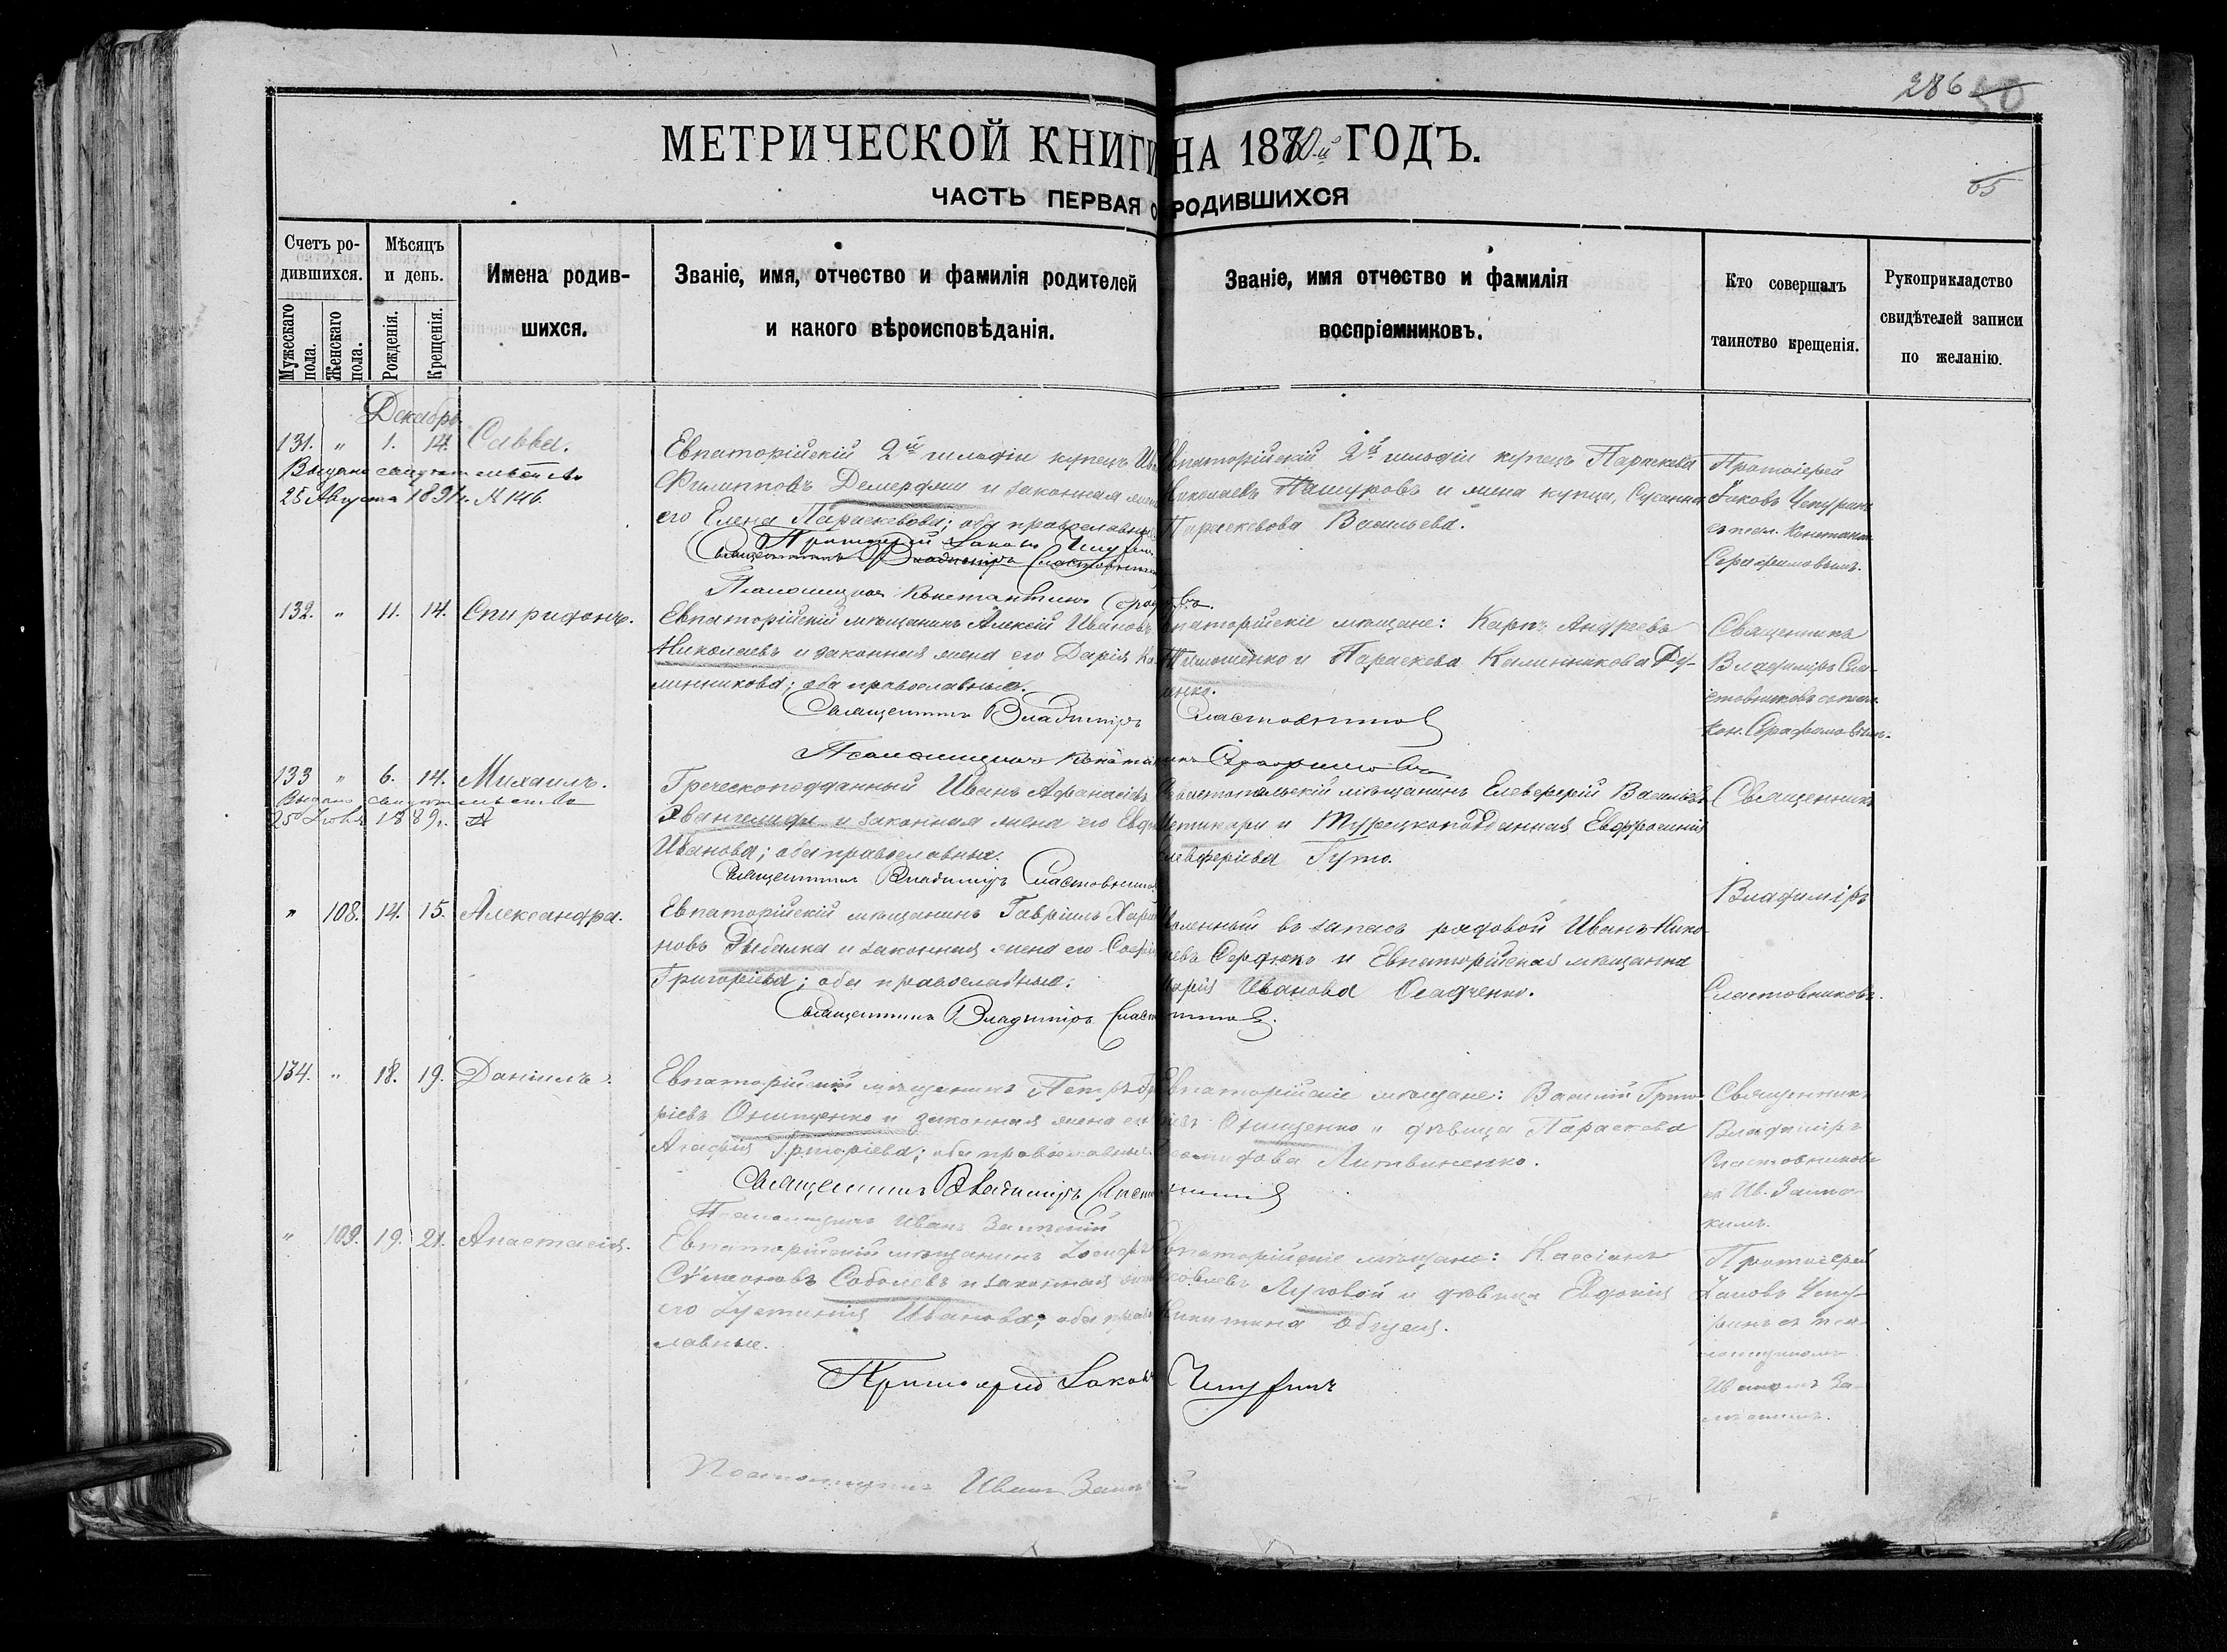 286 50
МЕТРИЧЕСКОЙ КНИГИ НА 1880-й ГОДЪ.
65
ЧАСТЬ ПЕРВАЯ О РОДИВШИХСЯ
Счетъ ро-
дившихся.
Мужескаго пола.
Женскаго пола.
Мѣсяцъ
и день.
Рожденія.
Крещенія.
Имена родив-
шихся.
Званіе, имя, отчество и фамилія родителей
и какого вѣроисповѣданія.
Званіе, имя отчество и фамилія
воспріемниковъ.
Кто совершалъ
таинство крещенія.
Рукоприкладство
свидѣтелей записи
по желанію.
Декабрь
131. " 1. 14. Савва.
Выдано свидѣтельство
25 Августа 1891 г. № 146.
Евпаторійскій 2й гильдіи купецъ
Филипповъ Демерджи и законная жена
его Елена Параскевова; оба православные
Протоіерей Іаковъ Чепуринъ
Священникъ Владиміръ Сластовниковъ
Псаломщикъ Константинъ
Евпаторійскій 2й гильдіи купецъ Параскева
Николаевъ Пашуровъ и жена купца, Сусанна
Параскевова Васильева.
Протоіерей
Іаковъ Чепуринъ
съ псал. Констант.
Серафимовымъ.
132. " 11. 14. Спиридонъ.
Евпаторійскій мѣщанинъ Алексій Ивановъ
Николаевъ и законная жена его Дарія Ка-
линникова; оба православные.
Священникъ Владиміръ Сластовниковъ
Псаломщикъ Константинъ Серафимовъ
Евпаторійскіе мѣщане: Карпъ Андреевъ
Тимошенко и Параскева Калинникова Ду-
ленко.
Священникъ
Владиміръ Сла-
стовниковъ съ псал.
Кон. Серафимовым.
133 " 6. 14. Михаилъ.
Выдано свидѣтельство
25 Іюля 1889 г. №
Греческоподданный Иванъ Афанасіевъ
Евангелиди и законная жена его
Иванова; оба православные.
Священникъ Владиміръ Сластовниковъ
Севастопольскій мѣщанинъ Елевферій Васильевъ
и Турецкоподданная Евфросинія
Елевферіева Гуто.
Священникъ
Владиміръ
Сластовниковъ.
" 108. 14. 15. Александра.
Евпаторійскій мѣщанинъ Гавріилъ Хари-
новъ Рыбалка и законная жена его Софія
Григоріева; оба православные.
Священникъ Владиміръ Сластовниковъ.
Уволенный въ запасъ рядовой Иванъ Нико-
лаевъ Сердюкъ и Евпаторійская мѣщанка
Марія Иванова Осадченко.
134. " 18. 19. Даніилъ.
Евпаторійскій мѣщанинъ Петръ Гри-
ріевъ Онищенко и законная жена его
Агафія Григоріева; оба православные
Священникъ Владиміръ Сластовниковъ
Псаломщикъ Иванъ
Евпаторійскіе мѣщане: Василій Григо-
ріевъ Онищенко и дѣвица Параскева
Литвиненко.
Священникъ
Владиміръ
Сластовниковъ
" 109. 19. 21. Анастасія.
Евпаторійскій мѣщанинъ Іосифъ
Сѵмеоновъ Соболевъ и законная жена
его Іустинія Иванова; оба право-
славные.
Протоіерей Іаковъ Чепуринъ
Псаломщикъ Иванъ
Евпаторійскіе мѣщане: Кассіанъ
Яковлевъ Луговой и дѣвица Евдокія
Никитина
Протоіерей
Іаковъ Чепу-
ринъ съ пса-
ломщикомъ